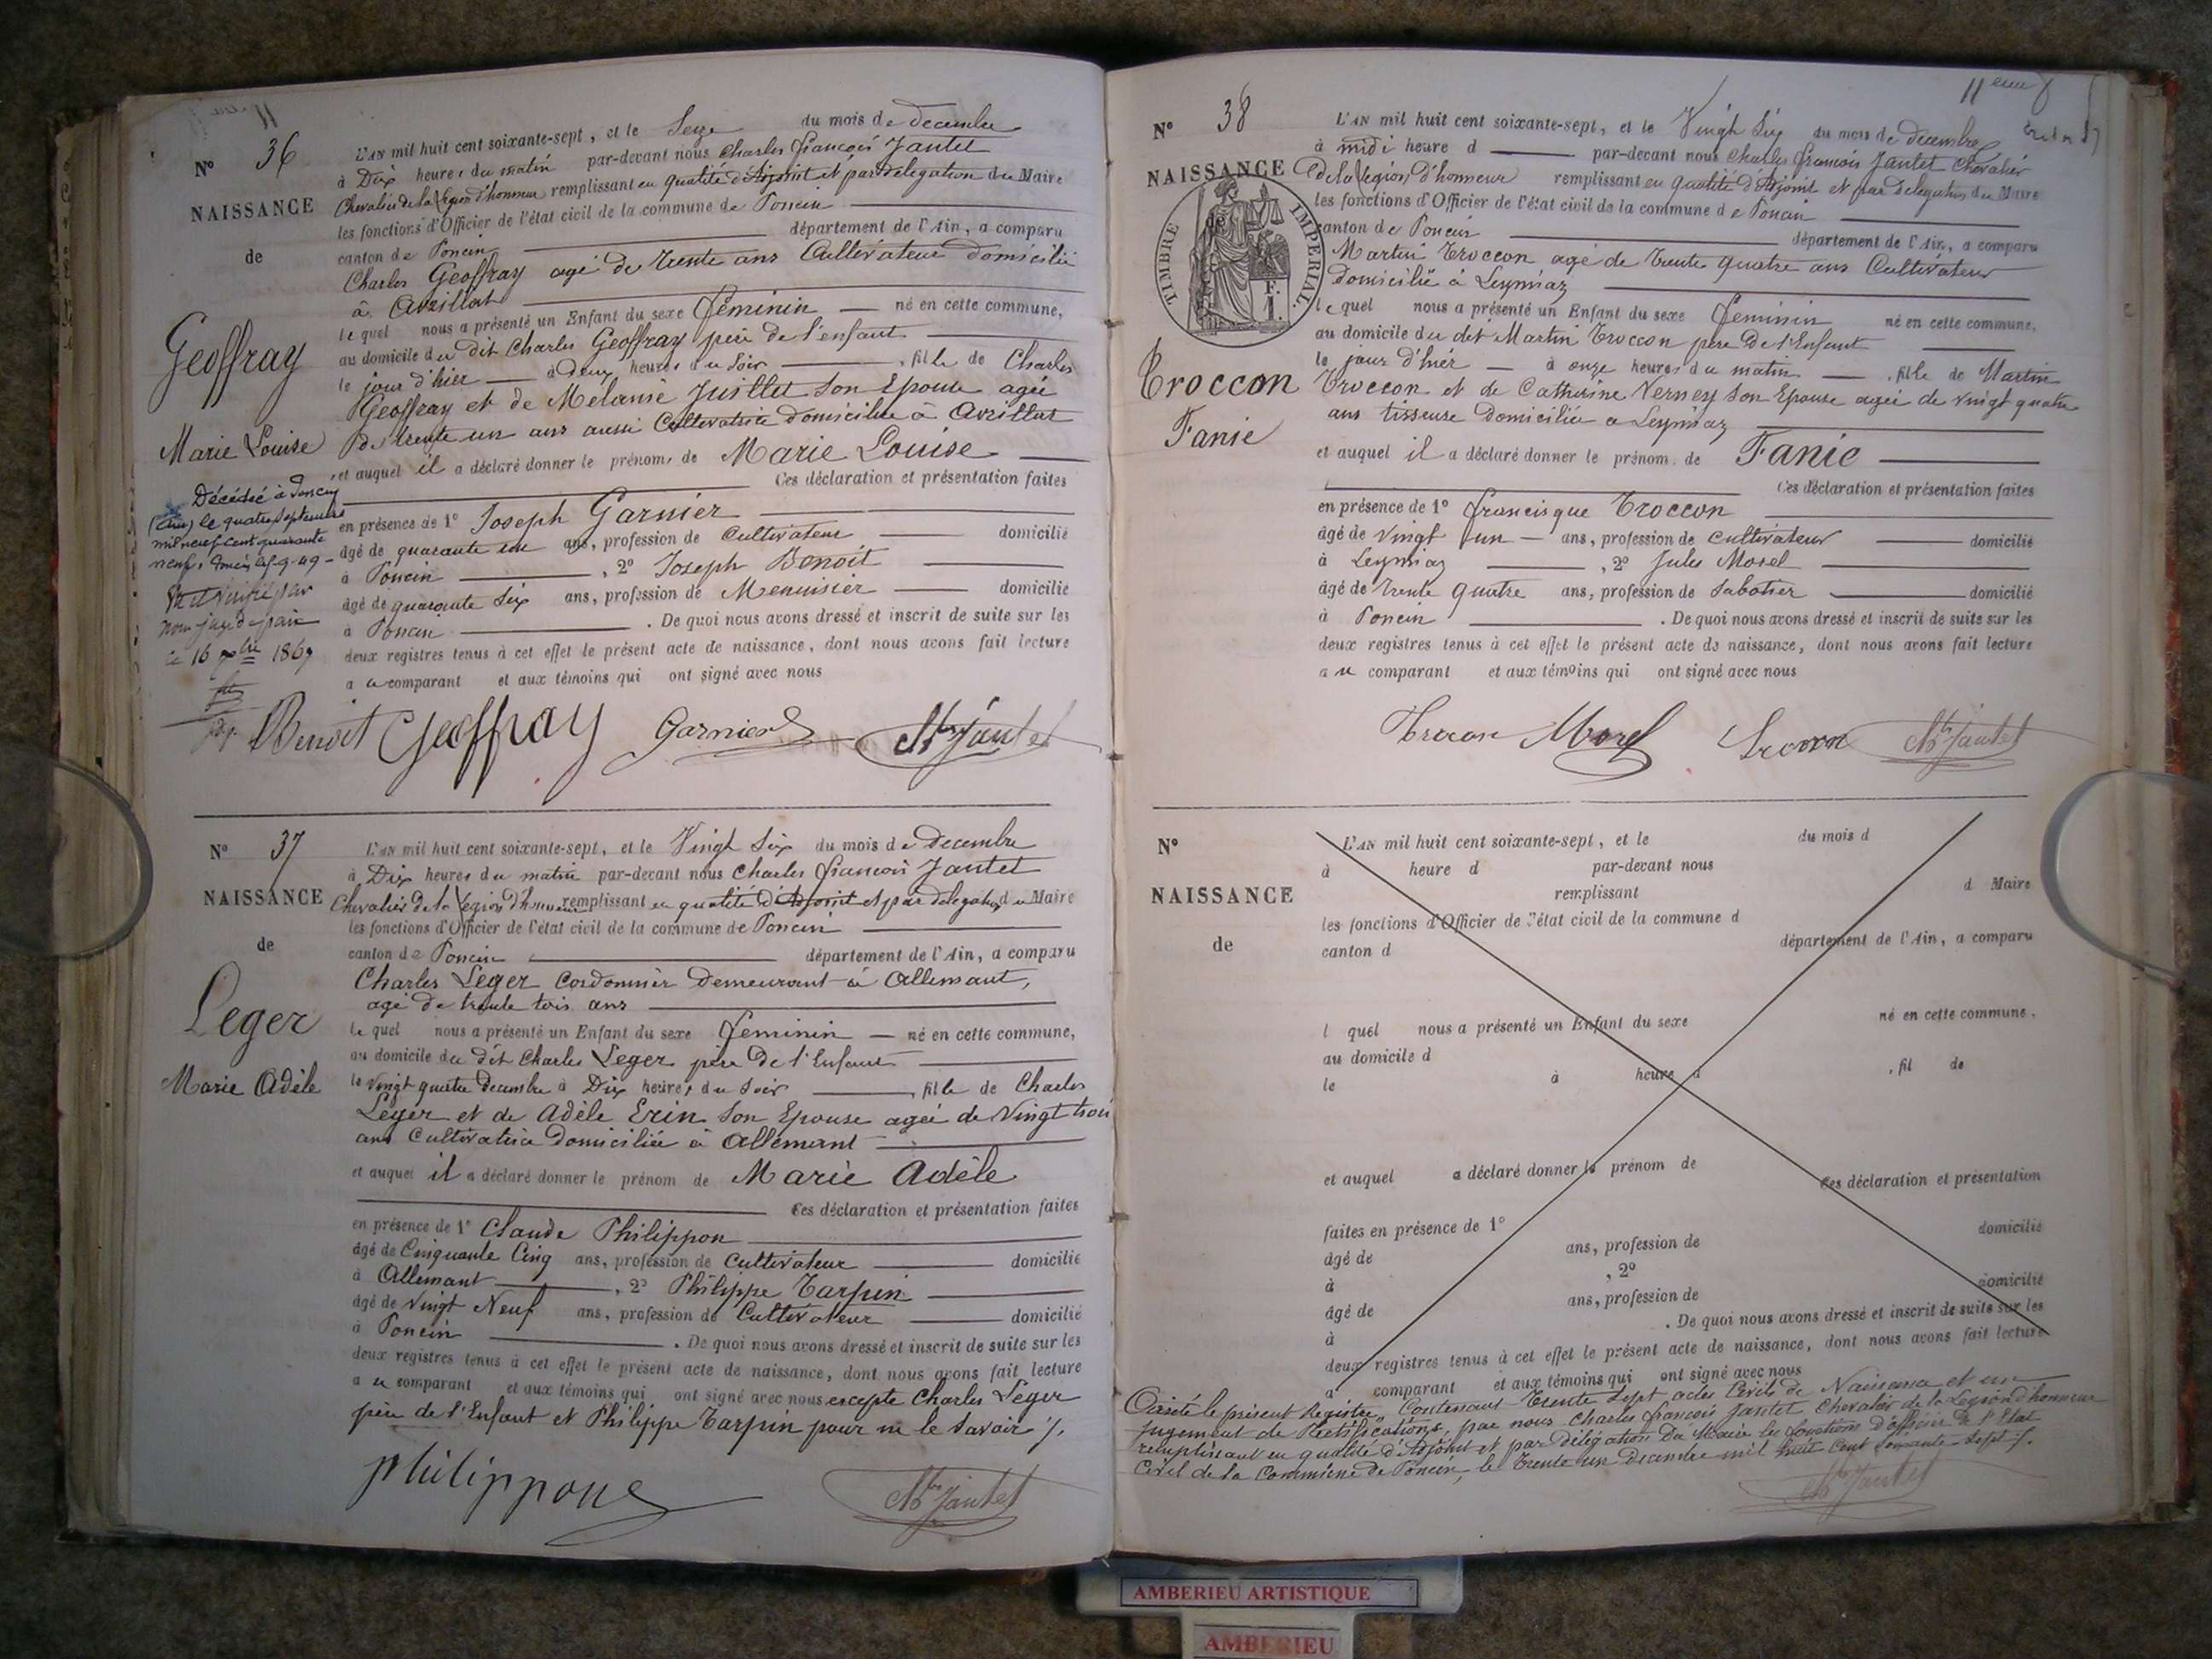 N° 36
NAISSANCE
de
Geoffray
Marie Louise
Décédée à Poncin
(Ain) le quatre septembre
mil neuf cent quarante
neuf.
le 16 1867
L'AN mil huit cent soixante-sept, et le Seize du mois de decembre
à Dix heures du matin par-devant nous Charles françois Jantet
Chevalier de la Légion d'honneur remplissant en qualité d'Adjoint et par délégation du Maire
les fonctions d'Officier de l'état civil de la commune de Poncin
canton de Poncin département de l'Ain, a comparu
Charles Geoffray agé de trente ans Cultivateur domicilié
à Avrillat
lequel nous a présenté un Enfant du sexe féminin né en cette commune,
au domicile du dit Charles Geoffray père de l'enfant
le jour d'hier à deux heures du soir, fille de Charles
Geoffray et de Mélanie Juillet son Epouse agée
de trente un ans aussi Cultivatrice domiciliée à Avrillat
et auquel il a déclaré donner le prénoms de Marie Louise
Ces déclaration et présentation faites
en présence de 1° Joseph Garnier
âgé de quarante un ans, profession de Cultivateur domicilié
à Poncin, 2° Joseph Benoit
âgé de quarante six ans, profession de Menuisier domicilié
à Poncin. De quoi nous avons dressé et inscrit de suite sur les
deux registres tenus à cet effet le présent acte de naissance, dont nous avons fait lecture
au comparant et aux témoins qui ont signé avec nous
Benoit Geoffray Garnier Jantet
N° 37
NAISSANCE
de
Leger
Marie Adèle
L'AN mil huit cent soixante-sept, et le Vingt Six du mois de Decembre
à Dix heures du matin par-devant nous Charles françois Jantet
Chevalier de la Légion d'honneur remplissant en qualité d'Adjoint et par délégation du Maire
les fonctions d'Officier de l'état civil de la commune de Poncin
canton de Poncin département de l'Ain, a comparu
Charles Leger Cordonnier Demeurant à Allemant,
agé de trente trois ans
lequel nous a présenté un Enfant du sexe féminin né en cette commune,
au domicile du dit Charles Leger père de l'Enfant
le vingt quatre decembre à Dix heures du soir, fille de Charles
Léger et de Adèle Erin son Epouse agée de Vingt trois
ans Cultivatrice domiciliée à Allemant
et auquel il a déclaré donner le prénom de Marie Adèle
Ces déclaration et présentation faites
en présence de 1° Claude Philippon
âgé de Cinquante Cinq ans, profession de Cultivateur domicilié
à Allemant, 2° Philippe Tarpin
âgé de Vingt Neuf ans, profession de Cultivateur domicilié
à Poncin. De quoi nous avons dressé et inscrit de suite sur les
deux registres tenus à cet effet le présent acte de naissance, dont nous avons fait lecture
au comparant et aux témoins qui ont signé avec nous excepté Charles Leger
père de l'Enfant et Philippe Tarpin pour ne le savoir
philippon Jantet
N° 38
NAISSANCE
de
TIMBRE IMPÉRIAL
1 F.
Troccon
Fanie
L'AN mil huit cent soixante-sept, et le Vingt Six du mois de decembre
à midi heure d par-devant nous Charles françois Jantet Chevalier
de la Légion d'honneur remplissant en qualité d'Adjoint et par délégation du Maire
les fonctions d'Officier de l'état civil de la commune de Poncin
canton de Poncin département de l'Ain, a comparu
Martin Troccon agé de trente quatre ans Cultivateur
Domicilié à Leymiaz
lequel nous a présenté un Enfant du sexe féminin né en cette commune,
au domicile du dit Martin Troccon père de l'Enfant
le jour d'hier à onze heures du matin, fille de Martin
Troccon et de Catherine Verney son Epouse agée de vingt quatre
ans tisseuse domiciliée à Leymiaz
et auquel il a déclaré donner le prénom de Fanie
Ces déclaration et présentation faites
en présence de 1° francisque Troccon
âgé de vingt un ans, profession de cultivateur domicilié
à Leymiaz, 2° Jules Morel
âgé de trente quatre ans, profession de Sabotier domicilié
à Poncin. De quoi nous avons dressé et inscrit de suite sur les
deux registres tenus à cet effet le présent acte de naissance, dont nous avons fait lecture
au comparant et aux témoins qui ont signé avec nous
Troccon Morel Troccon Jantet
N°
NAISSANCE
de
L'AN mil huit cent soixante-sept, et le du mois d
à heure d par-devant nous
remplissant d Maire
les fonctions d'Officier de l'état civil de la commune d
canton d département de l'Ain, a comparu
l quel nous a présenté un Enfant du sexe né en cette commune,
au domicile d
le à heure d, fil de
et auquel a déclaré donner le prénom de
Ces déclaration et présentation
faites en présence de 1°
âgé de ans, profession de domicilié
à, 2°
âgé de ans, profession de domicilié
à. De quoi nous avons dressé et inscrit de suite sur les
deux registres tenus à cet effet le présent acte de naissance, dont nous avons fait lecture
a comparant et aux témoins qui ont signé avec nous
le présent Registre, Contenant trente sept actes Civils de Naissance et un
jugement de Rectifications, par nous Charles françois Jantet Chevalier de la Légion d'honneur
remplissant en qualité d'Adjoint et par délégation du Maire les fonctions d'officier de l'Etat
Civil de la Commune de Poncin, le trente un Decembre mil huit Cent soixante-sept
Jantet
AMBERIEU ARTISTIQUE
AMBERIEU